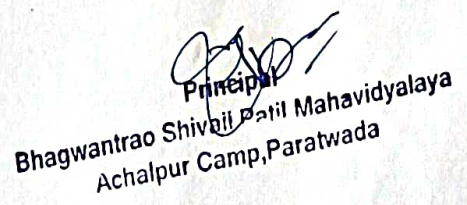 Principal
Bhagwantrao Shivaji Patil Mahavidyalaya
Achalpur Camp,Paratwada